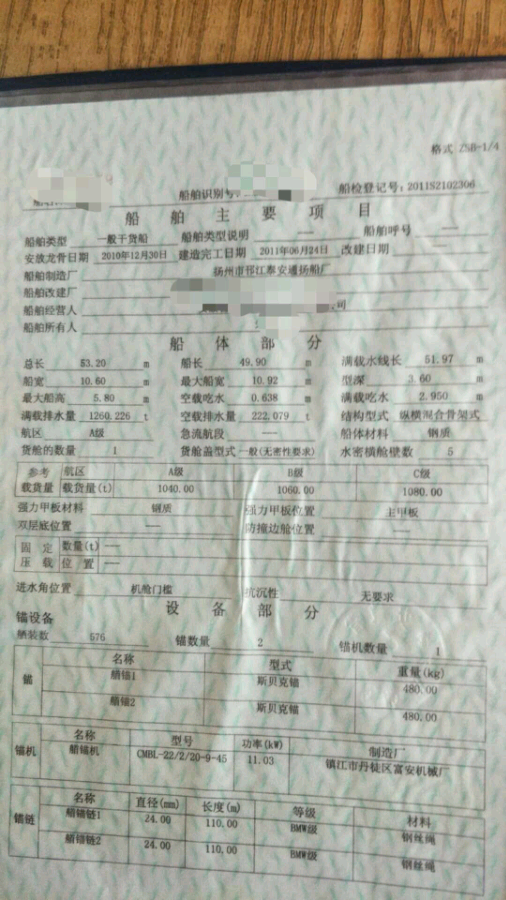 格式 ZSB-1/4
船舶识别号 船检登记号: 2011S2102306
船舶主要项目
船舶类型 一般干货船 船舶类型说明 —— 船舶呼号 ——
安放龙骨日期 2010年12月30日 建造完工日期 2011年06月24日 改建日期 ——
船舶制造厂 扬州市邗江泰安通扬船厂
船舶改建厂
船舶经营人 司
船舶所有人
船体部分
总长 53.20 m 船长 49.90 m 满载水线长 51.97 m
船宽 10.60 m 最大船宽 10.92 m 型深 3.60 m
最大船高 5.80 m 空载吃水 0.638 m 满载吃水 2.950 m
满载排水量 1260.226 t 空载排水量 222.079 t 结构型式 纵横混合骨架式
航区 A级 急流航段 —— 船体材料 钢质
货舱的数量 1 货舱盖型式 一般(无密性要求) 水密横舱壁数 5
参考 航区 A级 B级 C级
载货量 载货量(t) 1040.00 1060.00 1080.00
强力甲板材料 钢质 强力甲板位置 主甲板
双层底位置 —— 防撞边舱位置 ——
固定 数量(t) ——
压载 位置 ——
进水角位置 机舱门槛 抗沉性 无要求
设备部分
锚设备
舾装数 576 锚数量 2 锚机数量 1
名称 型式 重量(kg)
锚 艏锚1 斯贝克锚 480.00
艏锚2 斯贝克锚 480.00
名称 型号 功率(kW) 制造厂
锚机 艏锚机 CMBL-22/2/20-9-45 11.03 镇江市丹徒区富安机械厂
名称 直径(mm) 长度(m) 等级 材料
锚链 艏锚链1 24.00 110.00 BMW级 钢丝绳
艏锚链2 24.00 110.00 BMW级 钢丝绳